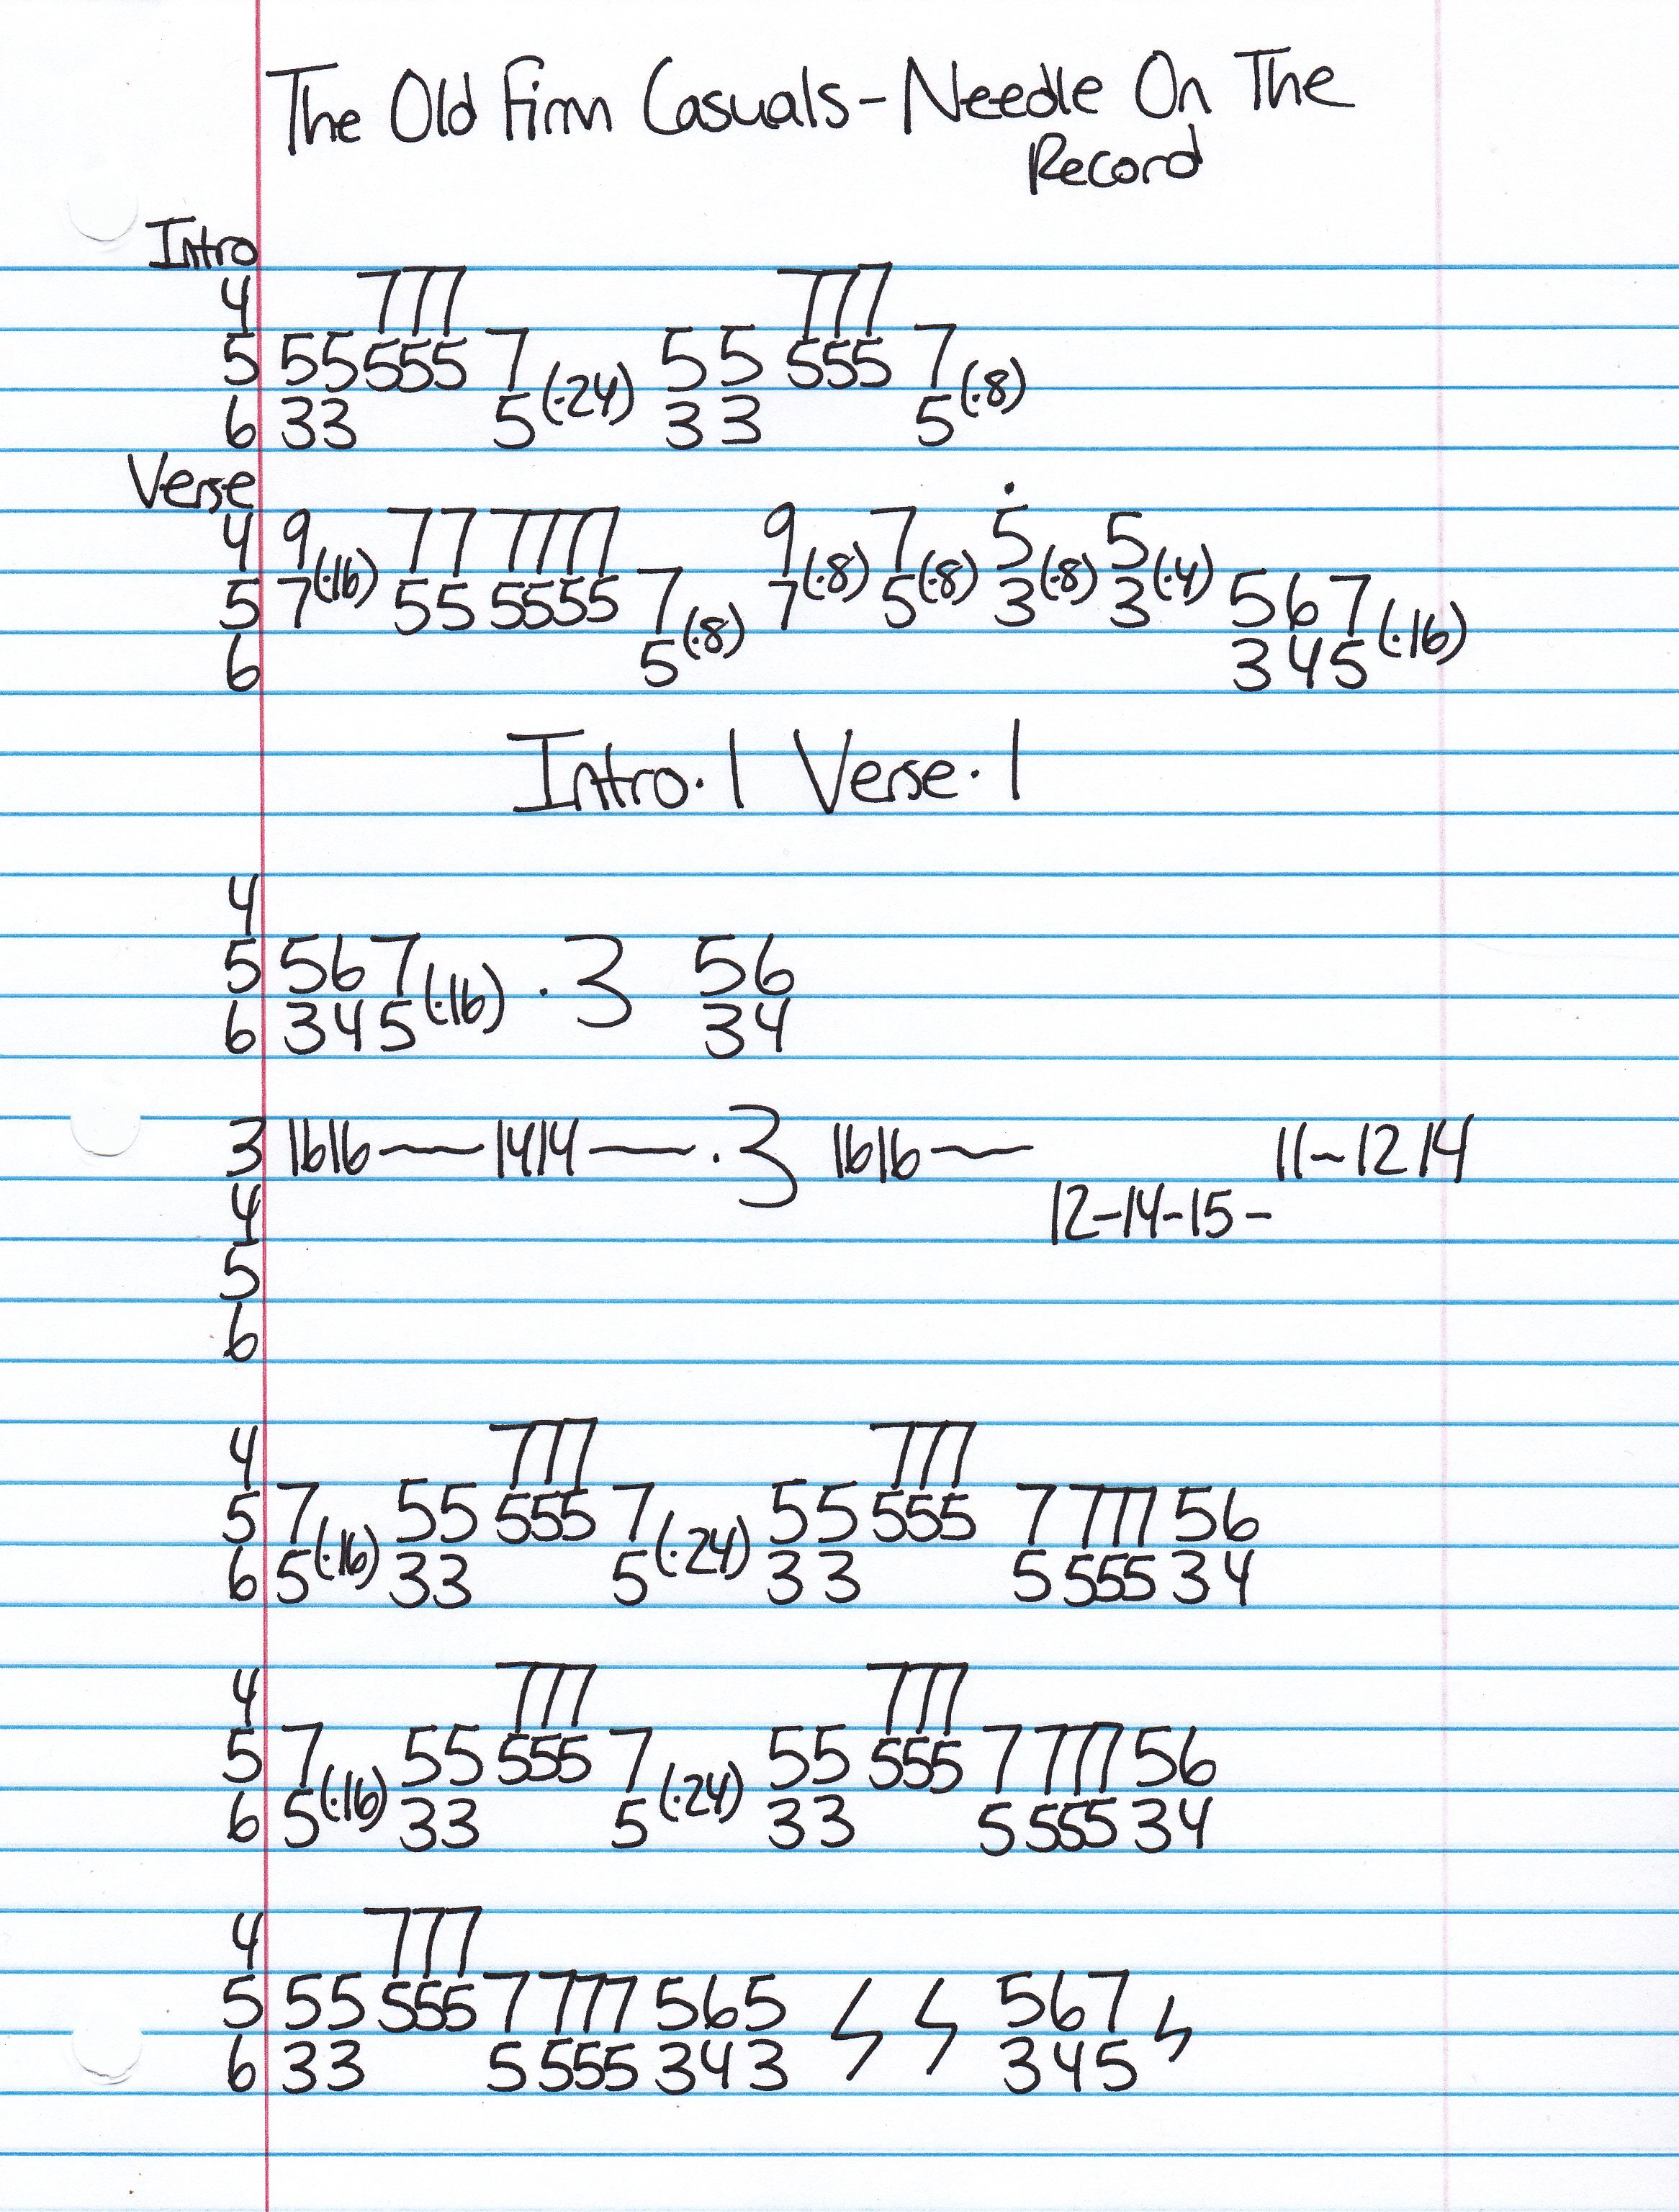 The Old Firm Casuals - Needle On The
Record
Intro
4 777 777
5 55 555 7 (·24) 55 555 7 (·8)
6 33 5 33 5
Verse
4 9 (·16) 77 7777 9 (·8) 7 (·8) 5 (·8) 5 (·4)
5 7 55 5555 7 (·8) 7 5 3 3 567 (·16)
6 5 345
Intro·1 Verse·1
4
5 567 (·16) ·3 56
6 345 34
3 1616~1414~·3 1616~ 11~1214
4 12-14-15-
5
6
4 777 777
5 7 (·16) 55 555 7 (·24) 55 555 7 777 56
6 5 33 5 33 5 555 34
4 777 777
5 7 (·16) 55 555 7 (·24) 55 555 7 777 56
6 5 33 5 33 5 555 34
4 777
5 55 555 7 777 565 567
6 33 5 555 343 345